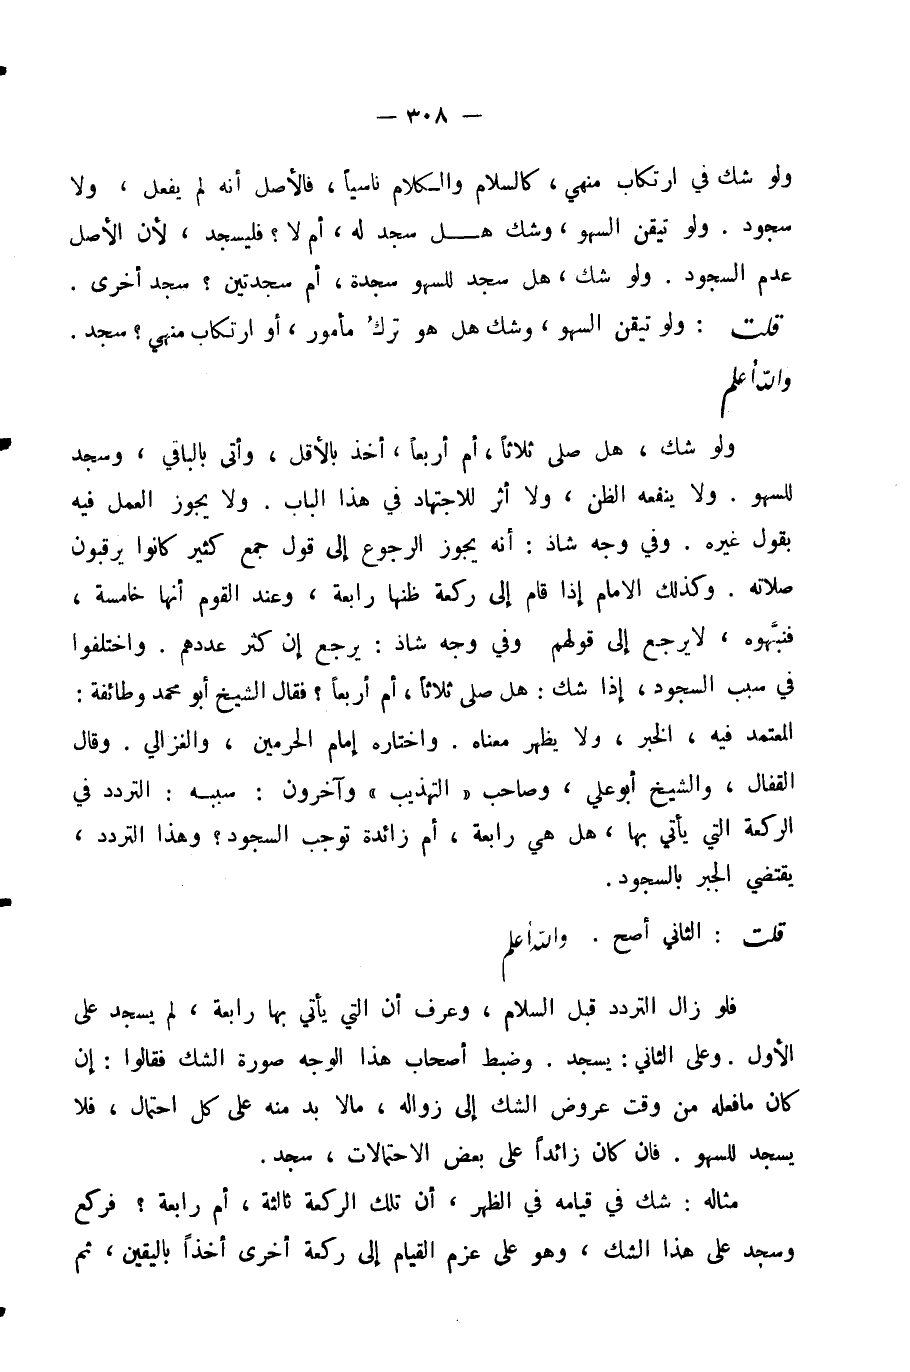 — ٣٠٨ —
ولو شك في ارتكاب منهي ، كالسلام والكلام ناسياً ، فالأصل أنه لم يفعل ، ولا
سجود . ولو تيقن السهو ، وشك هـــل سجد له ، أم لا ؟ فليسجد ، لأن الأصل
عدم السجود . ولو شك ، هل سجد للسهو سجدة ، أم سجدتين ؟ سجد أخرى .
قلت : ولو تيقن السهو ، وشك هل هو تركُ مأمور ، أو ارتكاب منهي ؟ سجد .
والله أعلم
ولو شك ، هل صلى ثلاثاً ، أم أربعاً ، أخذ بالأقل ، وأتى بالباقي ، وسجد
للسهو . ولا ينفعه الظن ، ولا أثر للاجتهاد في هذا الباب . ولا يجوز العمل فيه
بقول غيره . وفي وجه شاذ : أنه يجوز الرجوع إلى قول جمع كثير كانوا يرقبون
صلاته . وكذلك الامام إذا قام إلى ركعة ظنها رابعة ، وعند القوم أنها خامسة ،
فنبَّهوه ، لايرجع إلى قولهم وفي وجه شاذ : يرجع إن كثر عددهم . واختلفوا
في سبب السجود ، إذا شك : هل صلى ثلاثاً ، أم أربعاً ؟ فقال الشيخ أبو محمد وطائفة :
المعتمد فيه ، الخبر ، ولا يظهر معناه . واختاره إمام الحرمين ، والغزالي . وقال
القفال ، والشيخ أبوعلي ، وصاحب « التهذيب » وآخرون : سببـه : التردد في
الركعة التي يأتي بها ، هل هي رابعة ، أم زائدة توجب السجود؟ وهذا التردد ،
يقتضي الجبر بالسجود.
قلت : الثاني أصح . والله أعلم
فلو زال التردد قبل السلام ، وعرف أن التي يأتي بها رابعة ، لم يسجد على
الأول . وعلى الثاني : يسجد . وضبط أصحاب هذا الوجه صورة الشك فقالوا : إن
كان مافعله من وقت عروض الشك إلى زواله ، مالا بد منه على كل احتمال ، فلا
يسجد للسهو . فان كان زائداً على بعض الاحتمالات ، سجد .
مثاله : شك في قيامه في الظهر ، أن تلك الركعة ثالثة ، أم رابعة ؟ فركع
وسجد على هذا الشك ، وهو على عزم القيام إلى ركعة أخرى أخذاً باليقين ، ثم